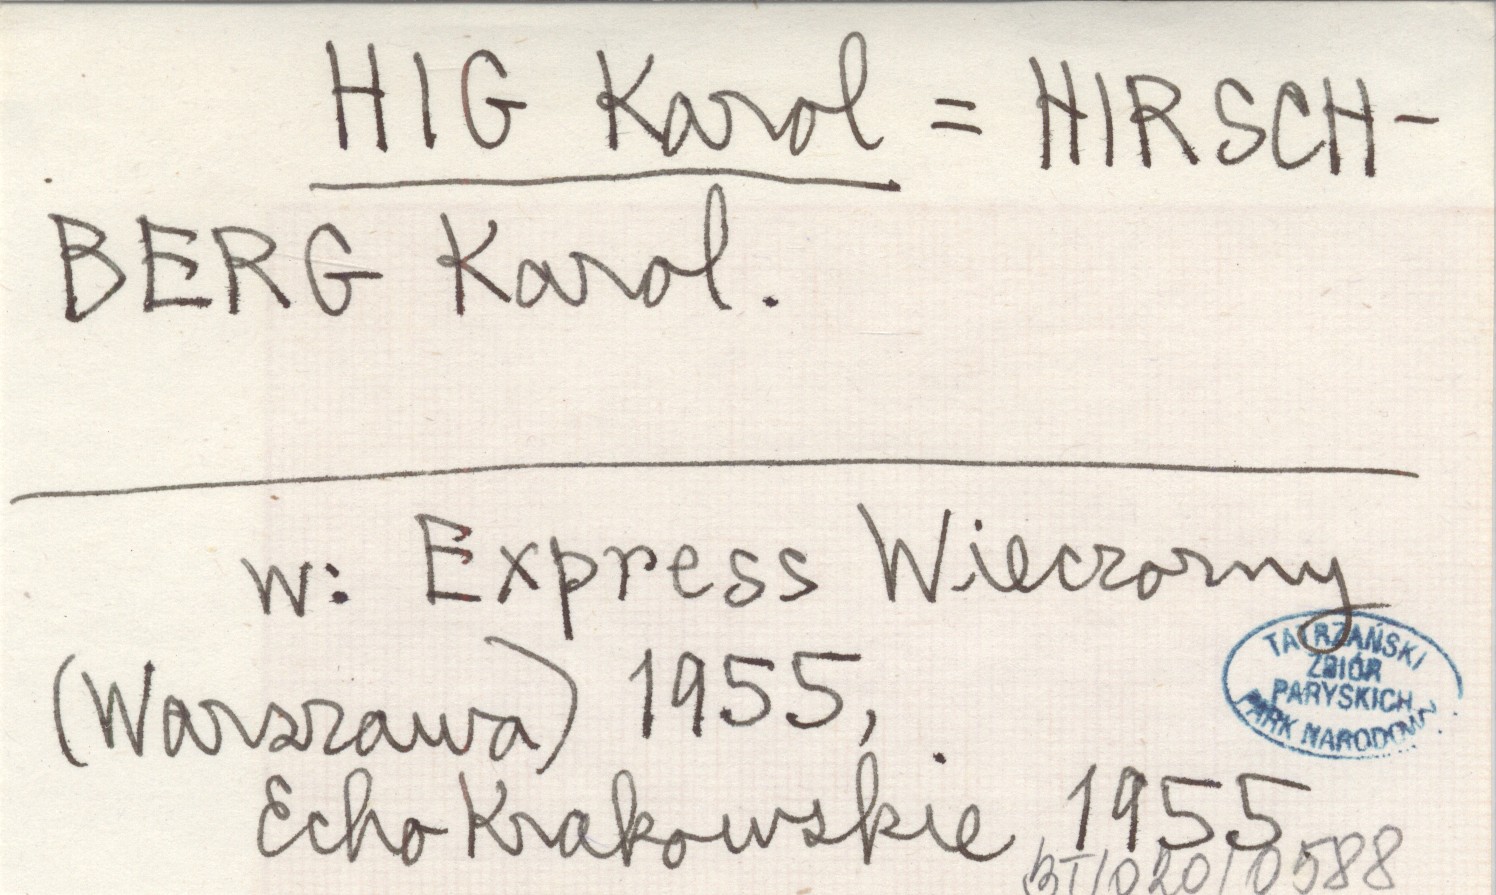 HIG Karol = HIRSCH-
BERG Karol.
w: Express Wieczorny
(Warszawa) 1955,
Echo Krakowskie 1955
TATRZAŃSKI
ZBIÓR
PARYSKICH
PARK NARODOWY
BT/020/0588